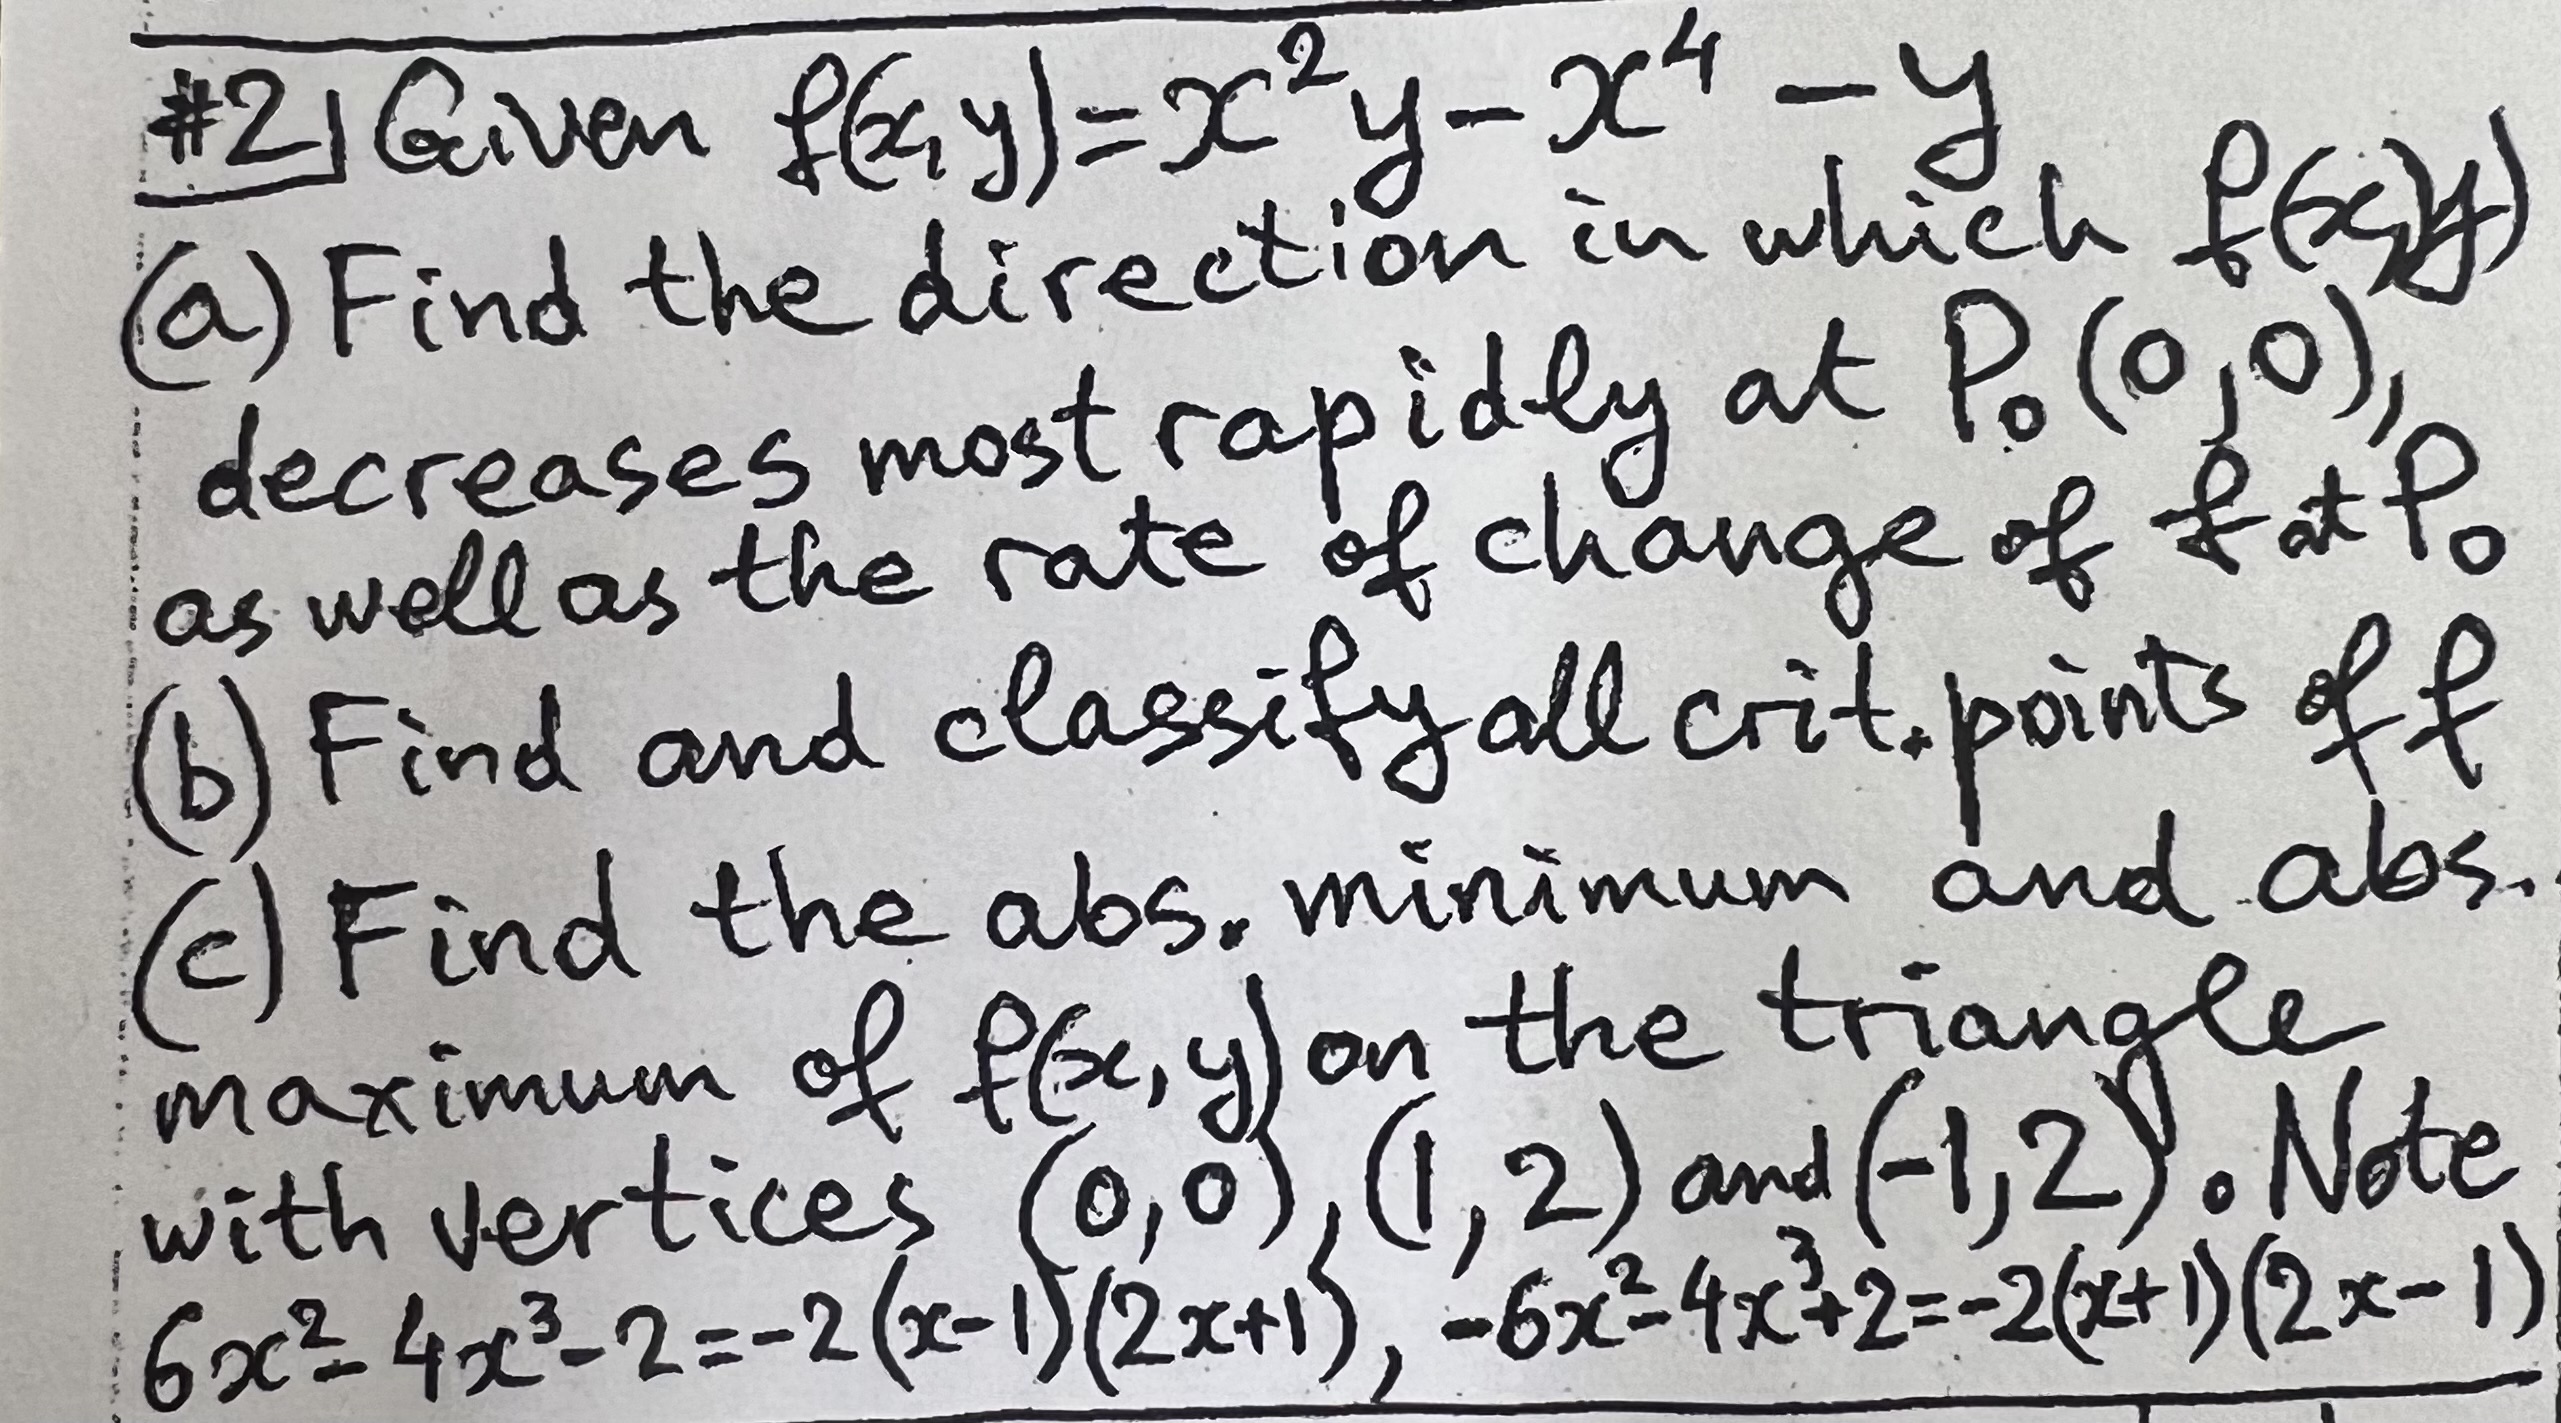 #2 Given f(x,y)=x²y-x⁴-y
(a) Find the direction in which f(x,y)
decreases most rapidly at P₀(0,0),
as well as the rate of change of f at P₀
(b) Find and classify all crit. points of f
(c) Find the abs. minimum and abs.
maximum of f(x,y) on the triangle
with vertices (0,0), (1,2) and (-1,2). Note
6x²-4x³-2=-2(x-1)(2x+1), -6x²-4x³+2=-2(x+1)(2x-1)